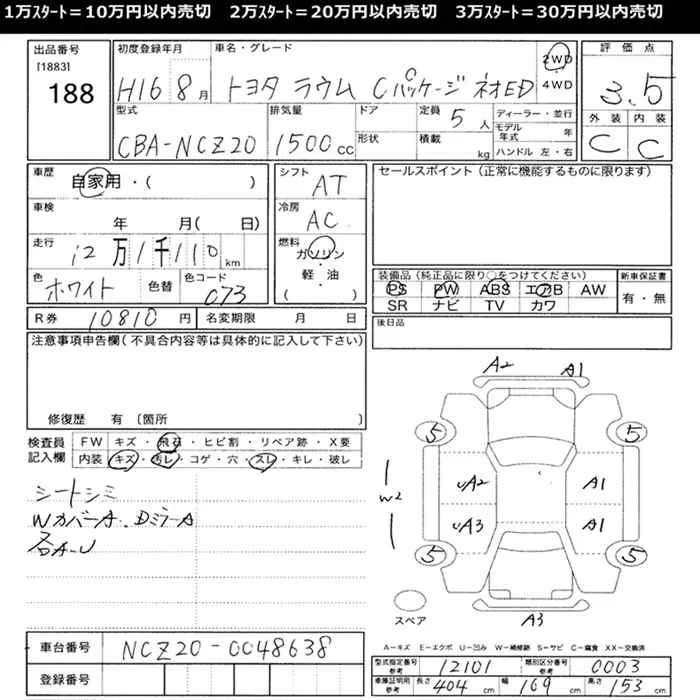 1万ｽﾀｰﾄ＝10万円以内売切　2万ｽﾀｰﾄ＝20万円以内売切　3万ｽﾀｰﾄ＝30万円以内売切
出品番号
[1883]
188
初度登録年月
H16 8月
車名・グレード
トヨタ ラウム Cパッケージ ネオED
2WD
4WD
評価点
3.5
型式
CBA-NCZ20
排気量
1500cc
ドア
形状
定員 5人
積載 kg
ディーラー・並行
モデル年式 年
ハンドル 左・右
外装 内装
C C
車歴
自家用・( )
車検
年 月( 日)
走行
12万1千110km
色
ホワイト
色替
色コード
073
シフト
AT
冷房
AC
燃料
ガソリン
・
軽・油
( )
セールスポイント (正常に機能するものに限ります)
装備品 (純正品に限り○をつけてください)
PS PW ABS エアB AW
SR ナビ TV カワ
新車保証書
有・無
R券 10810円
名変期限 月 日
後日品
注意事項申告欄 (不具合内容等は具体的に記入して下さい)
修復歴 有 〔箇所 〕
検査員記入欄
FW キズ・飛石・ヒビ割・リペア跡・X要
内装 キズ・汚レ・コゲ・穴・スレ・キレ・破レ
シートシミ
Wカバー-A. Dミラー-A
各A-U
A2 A1
5 5
W2
UA2 A1
UA3 A1
5 5
スペア
A3
車台番号 NCZ20-0048638
登録番号
A－キズ E－エクボ U－凹み W－補修跡 S－サビ C－腐食 XX－交換済
型式指定番号 参考 12101
類別区分番号 参考 0003
車庫証明用 参考 長さ 404 cm 幅 169 cm 高さ 153 cm